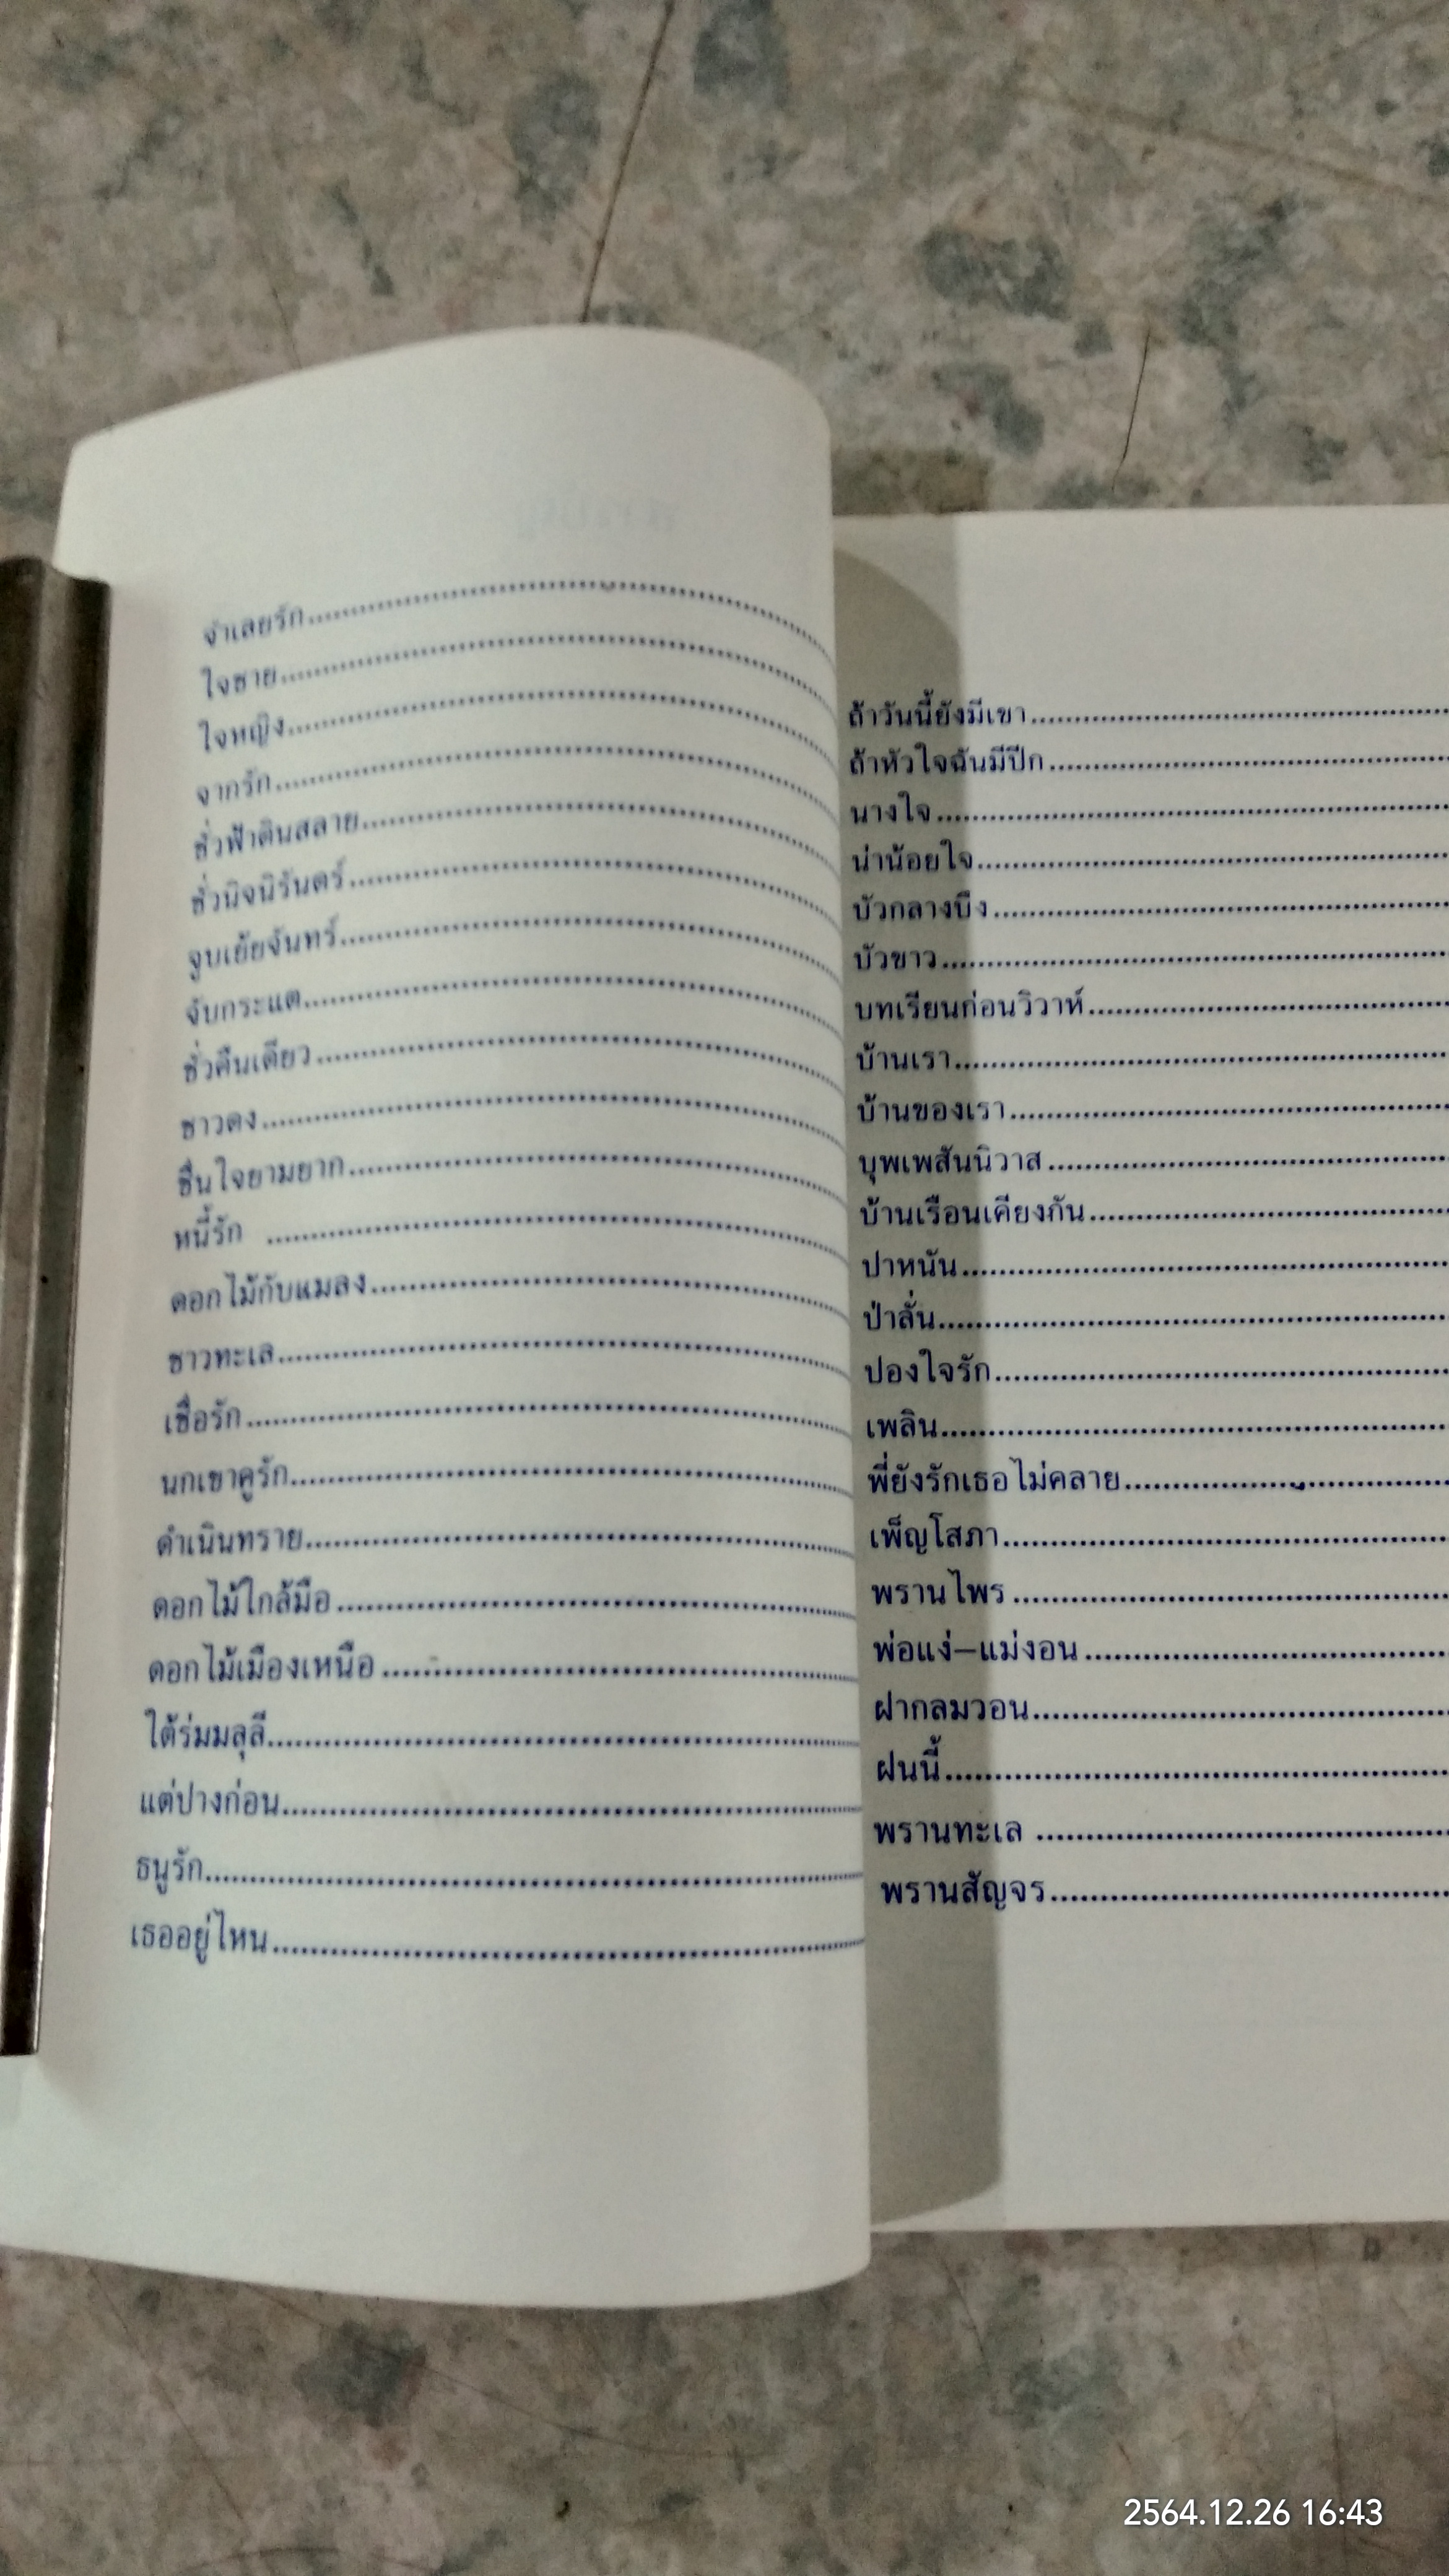 จำเลยรัก
ใจชาย
ใจหญิง
จากรัก
ชั่วฟ้าดินสลาย
ชั่วนิจนิรันดร์
จูบเย้ยจันทร์
จับกระแต
ชั่วคืนเดียว
ชาวดง
ชื่นใจยามยาก
หนี้รัก
ดอกไม้กับแมลง
ชาวทะเล
เชื่อรัก
นกเขาคูรัก
ดำเนินทราย
ดอกไม้ใกล้มือ
ดอกไม้เมืองเหนือ
ใต้ร่มมลุลี
แต่ปางก่อน
ธนูรัก
เธออยู่ไหน
ถ้าวันนี้ยังมีเขา
ถ้าหัวใจฉันมีปีก
นางใจ
น่าน้อยใจ
บัวกลางบึง
บัวขาว
บทเรียนก่อนวิวาห์
บ้านเรา
บ้านของเรา
บุพเพสันนิวาส
บ้านเรือนเคียงกัน
ปาหนัน
ป่าลั่น
ปองใจรัก
เพลิน
พี่ยังรักเธอไม่คลาย
เพ็ญโสภา
พรานไพร
พ่อแง่–แม่งอน
ฝากลมวอน
ฝนนี้
พรานทะเล
พรานสัญจร
2564.12.26 16:43